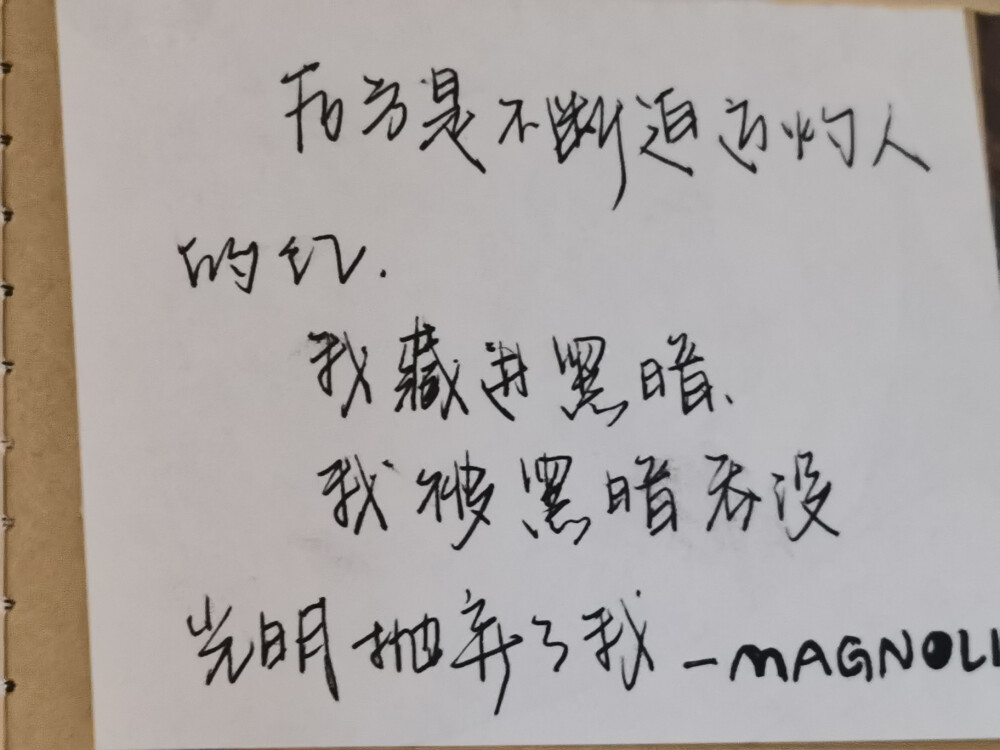 后方是不断迫近灼人
的红.
我藏进黑暗、
我被黑暗吞没
光明抛弃了我 -MAGNOLI